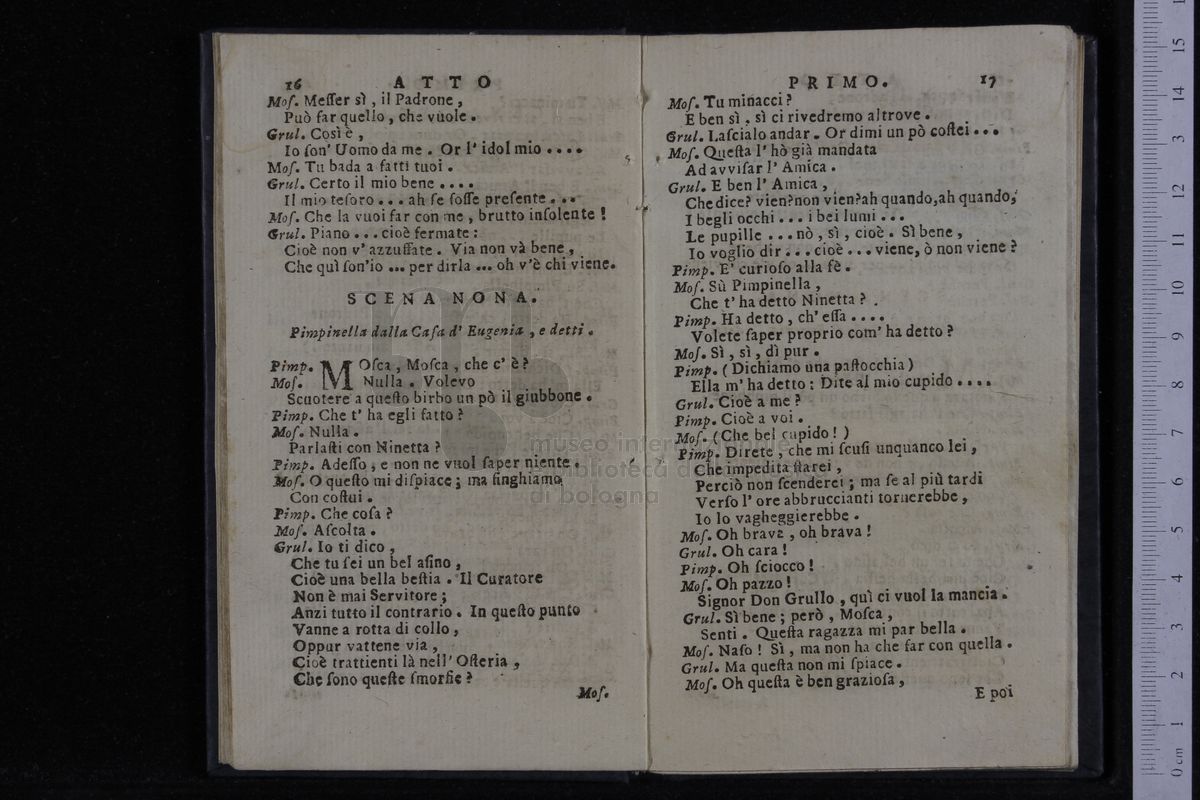 16 ATTO
Moſ. Meſſer sì , il Padrone ,
Può far quello , che vuole .
Grul. Così è ,
Io ſon' Uomo da me . Or l' idol mio . . . .
Moſ. Tu bada a fatti tuoi .
Grul. Certo il mio bene . . . .
Il mio teſoro . . . ah ſe foſſe preſente . . .
Moſ. Che la vuoi far con me , brutto inſolente !
Grul. Piano . . . cioè fermate :
Cioè non v' azzuffate . Via non và bene ,
Che quì ſon'io ... per dirla ... oh v'è chi viene.
SCENA NONA.
Pimpinella dalla Caſa d' Eugenia , e detti .
Pimp. MOſca , Moſca , che c' è ?
Moſ. Nulla . Volevo
Scuotere a queſto birbo un pò il giubbone .
Pimp. Che t' ha egli fatto ?
Moſ. Nulla .
Parlaſti con Ninetta ?
Pimp. Adeſſo , e non ne vuol ſaper niente .
Moſ. O queſto mi diſpiace ; ma finghiamo
Con coſtui .
Pimp. Che coſa ?
Moſ. Aſcolta .
Grul. Io ti dico ,
Che tu ſei un bel aſino ,
Cioè una bella beſtia . Il Curatore
Non è mai Servitore ;
Anzi tutto il contrario . In queſto punto
Vanne a rotta di collo ,
Oppur vattene via ,
Cioè trattienti là nell' Oſteria ,
Che ſono queſte ſmorfie ?
Moſ.
PRIMO. 17
Moſ. Tu minacci ?
E ben sì , sì ci rivedremo altrove .
Grul. Laſcialo andar . Or dimi un pò coſtei . . .
Moſ. Queſta l' hò già mandata
Ad avviſar l' Amica .
Grul. E ben l' Amica ,
Che dice? vien?non vien?ah quando,ah quando,
I begli occhi . . . i bei lumi . . .
Le pupille . . . nò , sì , cioè . Sì bene ,
Io voglio dir . . . cioè . . . viene, ò non viene ?
Pimp. E' curioſo alla fè .
Moſ. Sù Pimpinella ,
Che t' ha detto Ninetta ?
Pimp. Ha detto , ch' eſſa . . . .
Volete ſaper proprio com' ha detto ?
Moſ. Sì , sì , dì pur .
Pimp. ( Dichiamo una paſtocchia )
Ella m' ha detto : Dite al mio cupido . . . .
Grul. Cioè a me ?
Pimp. Cioè a voi .
Moſ. ( Che bel cupido ! )
Pimp. Direte , che mi ſcuſi unquanco lei ,
Che impedita ſtarei ,
Perciò non ſcenderei ; ma ſe al più tardi
Verſo l' ore abbruccianti tornerebbe ,
Io lo vagheggierebbe .
Moſ. Oh brava , oh brava !
Grul. Oh cara !
Pimp. Oh ſciocco !
Moſ. Oh pazzo !
Signor Don Grullo , quì ci vuol la mancia .
Grul. Sì bene ; però , Moſca ,
Senti . Queſta ragazza mi par bella .
Moſ. Naſo ! Sì , ma non ha che far con quella .
Grul. Ma queſta non mi ſpiace .
Moſ. Oh queſta è ben grazioſa ,
E poi